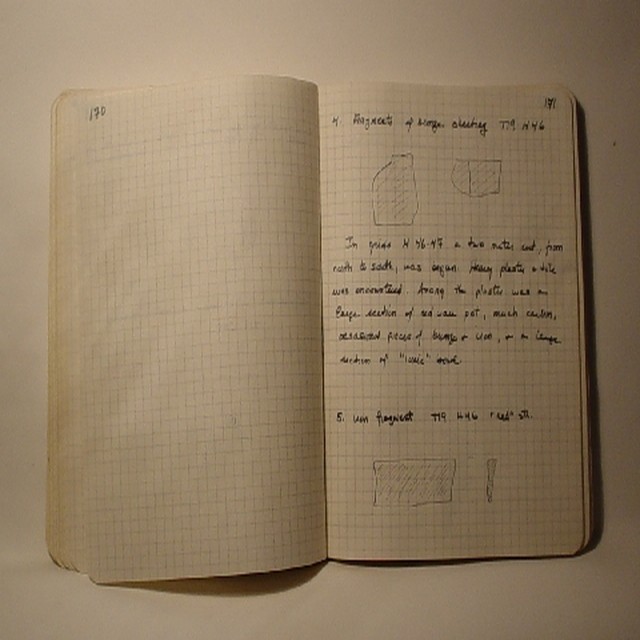 170
171
4. Fragments of bronze sheeting T19 H46
In grids H 46-47 a two meter cut, from
north to south, was begun. Heavy plaster & tile
was encountered. Among the plaster was a
large section of red ware pot, much carbon,
pieces of bronze & iron, & a large
section of "ionic"
5. iron fragment T19 H46 "red" str.